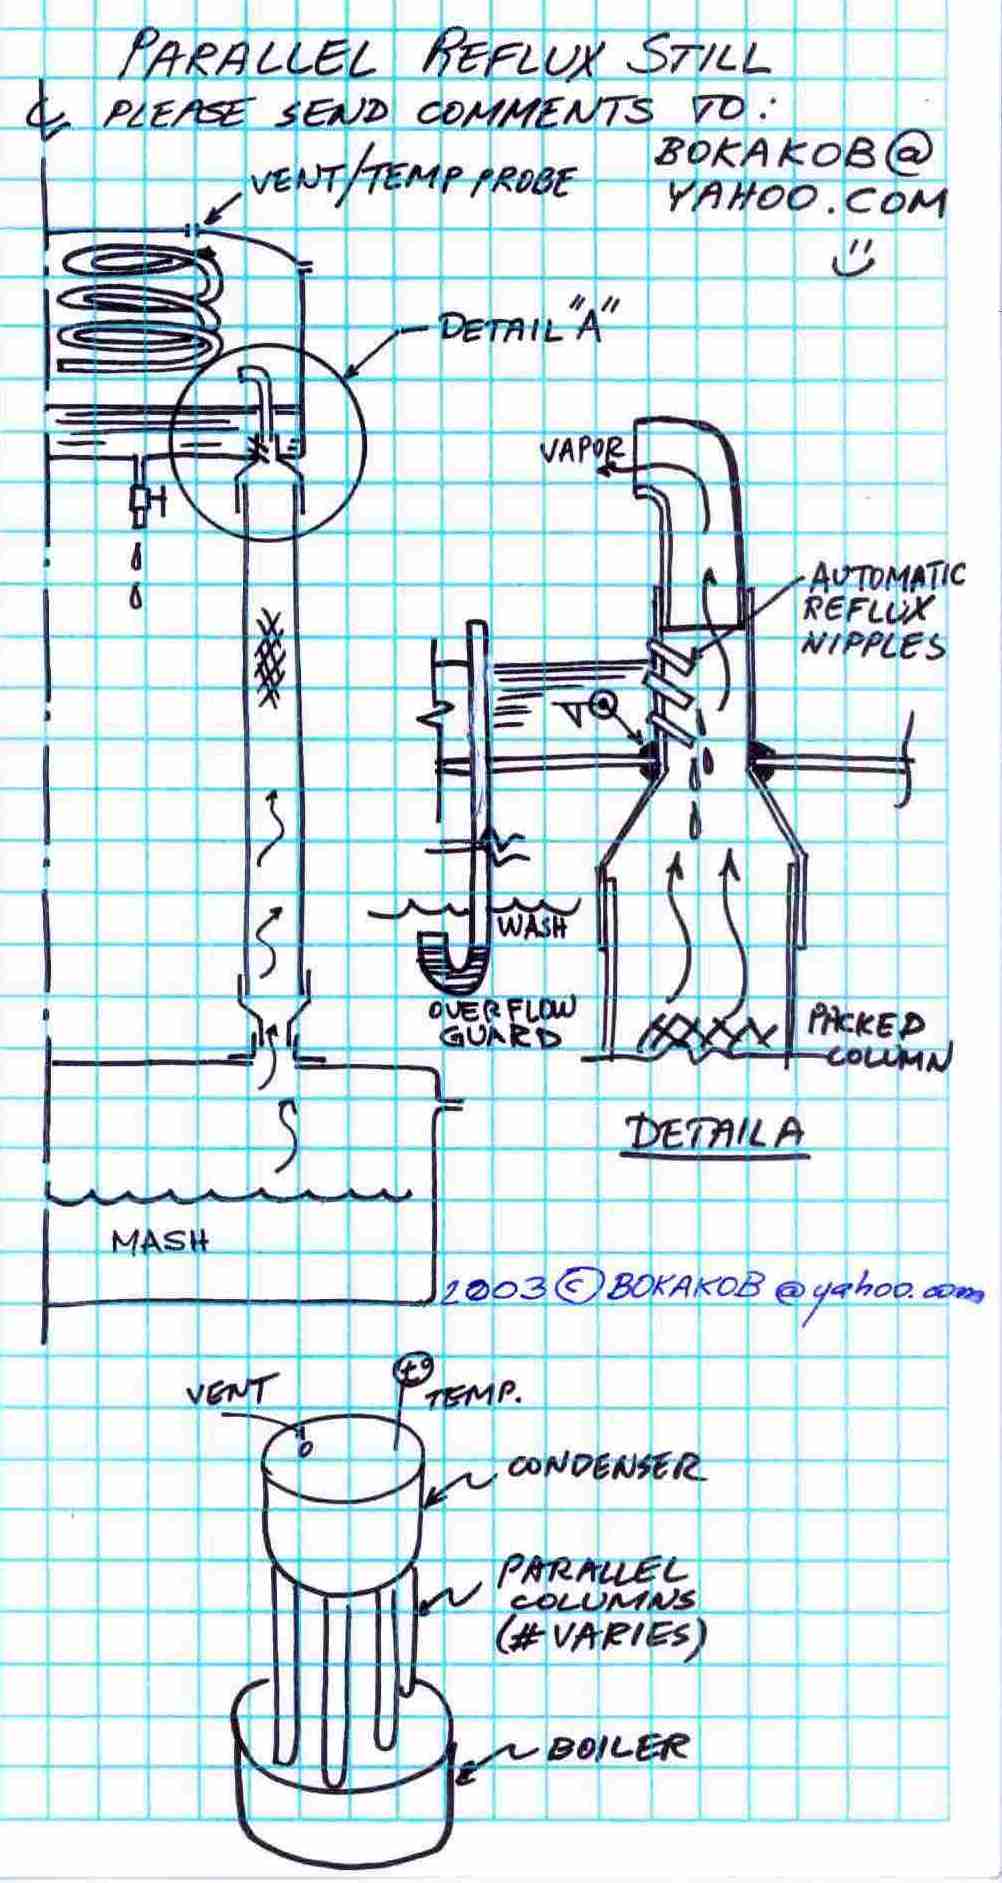 PARALLEL REFLUX STILL
℄ PLEASE SEND COMMENTS TO:
BOKAKOB@
YAHOO.COM
VENT/TEMP PROBE
DETAIL "A"
VAPOR
AUTOMATIC
REFLUX
NIPPLES
WASH
OVERFLOW
GUARD
PACKED
COLUMN
DETAIL A
MASH
2003 © BOKAKOB@yahoo.com
VENT
t°
TEMP.
CONDENSER
PARALLEL
COLUMNS
(# VARIES)
BOILER